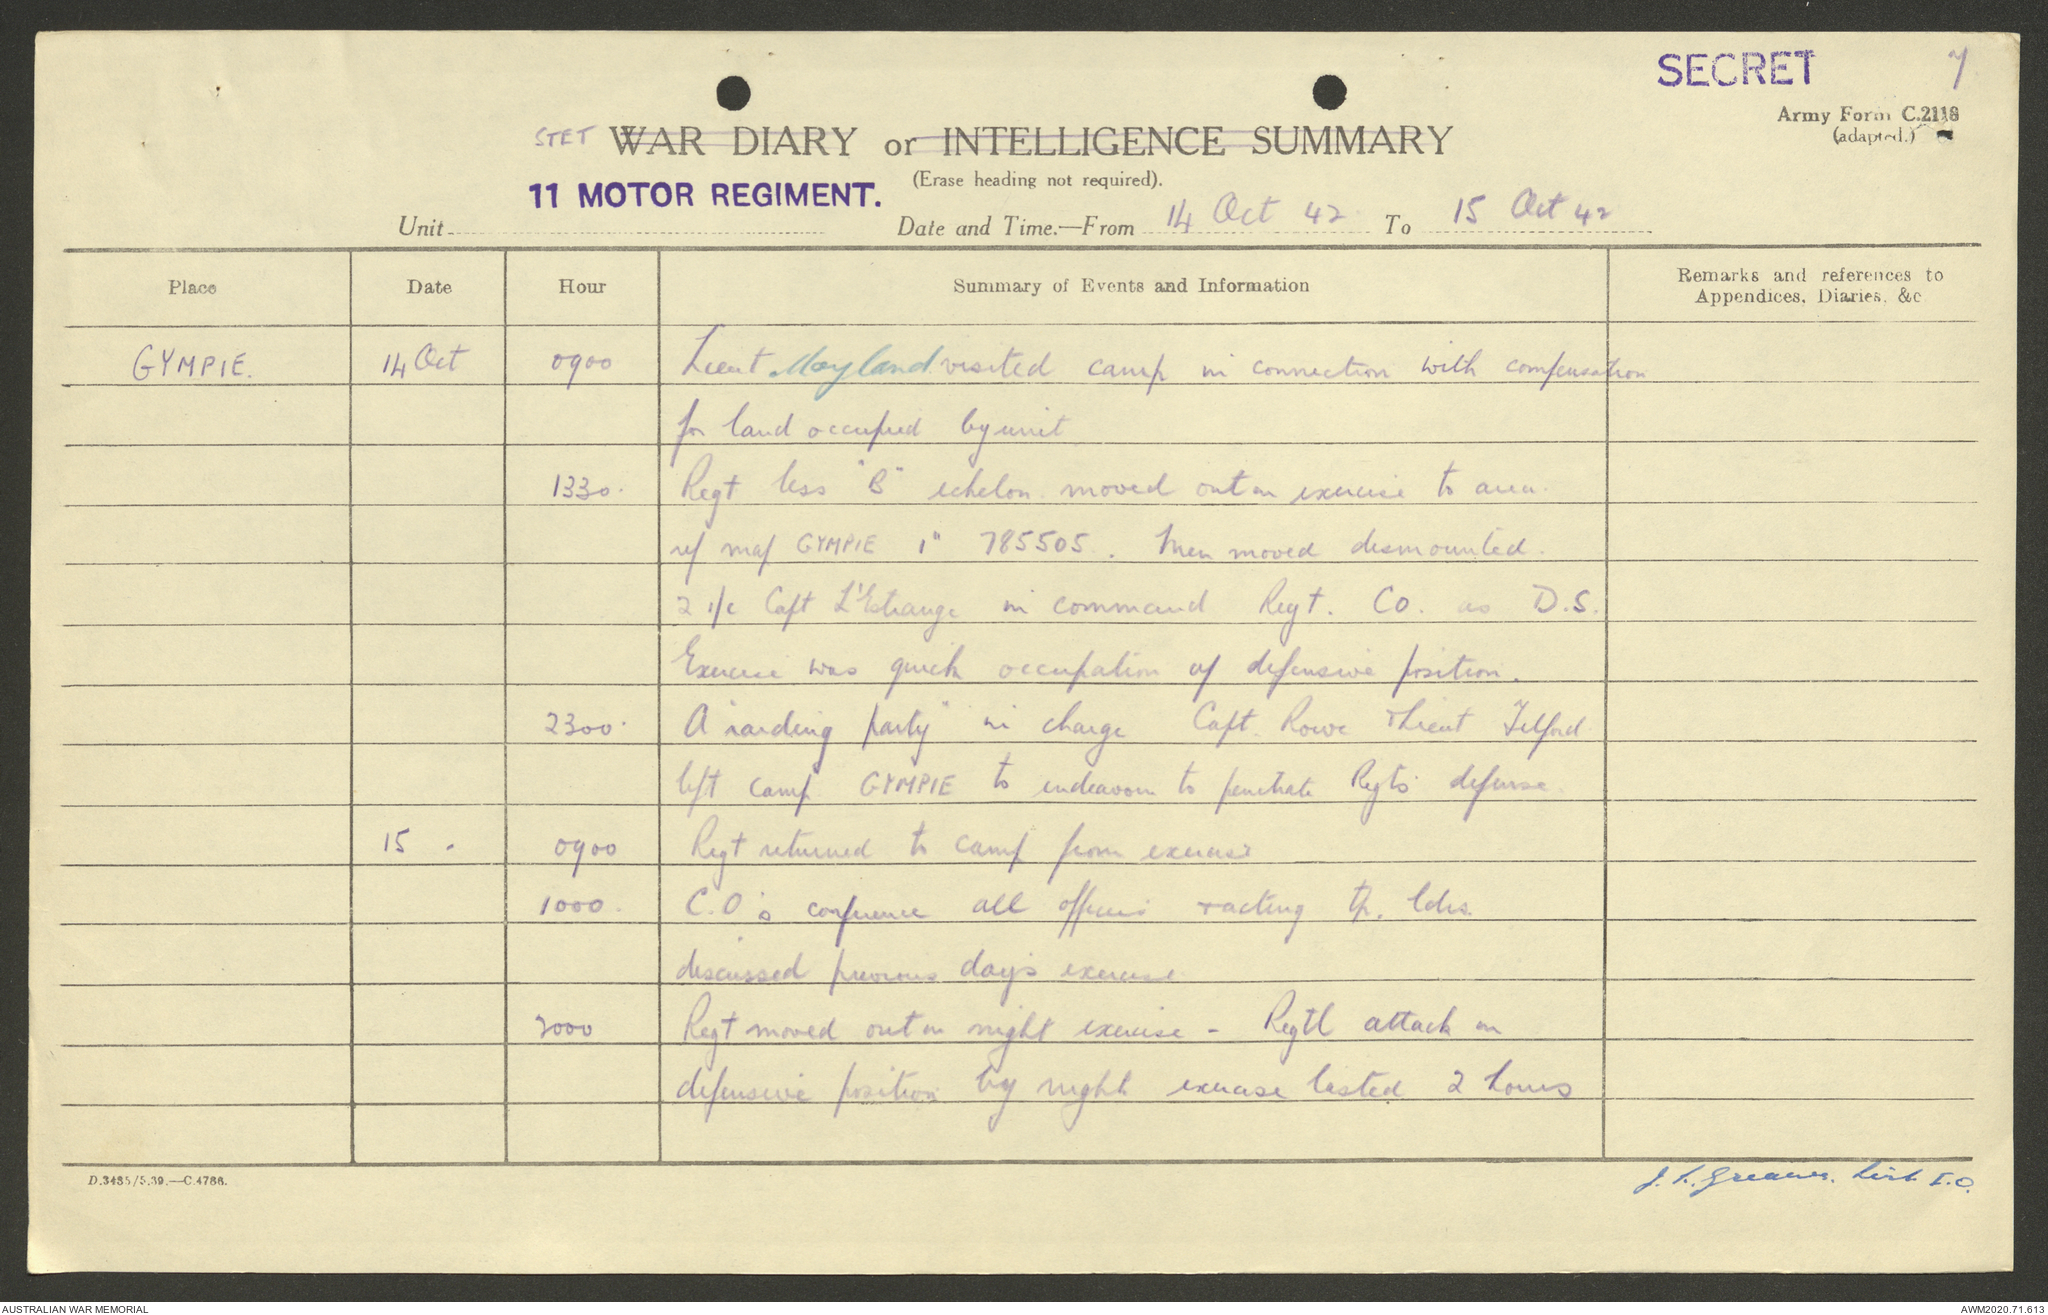 SECRET 7
Army Form C.2118
(adapted.)
STET WAR DIARY or INTELLIGENCE SUMMARY
(Erase heading not required).
11 MOTOR REGIMENT.
Unit Date and Time.—From 14 Oct 42 To 15 Oct 42
Place Date Hour Summary of Events and Information Remarks and references to
Appendices, Diaries, &c
GYMPIE. 14 Oct 0900 Lieut Mayland visited camp in connection with compensation
for land occupied by unit
1330. Regt less "B" echelon moved out on exercise to area
ref map GYMPIE 1" 785505. Men moved dismounted.
2 i/c Capt L'Estrange in command Regt. CO. as D.S.
Exercise was quick occupation of defensive position.
2300. A "raiding party" in charge Capt. Rowe & Lieut Telford
left camp GYMPIE to endeavour to penetrate Regts defense.
15 " 0900 Regt returned to camp from exercise
1000. C.O's conference all officers & acting Tp. ldrs.
discussed previous day's exercise
2000 Regt moved out on night exercise - Regtl attack on
defensive position by night exercise lasted 2 hours
D.3485/5.39.—C.4786.
J. L. Lieut I.O.
AUSTRALIAN WAR MEMORIAL AWM2020.71.613